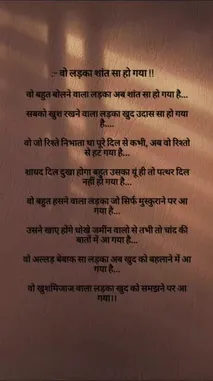 :- वो लड़का शांत सा हो गया !!
वो बहुत बोलने वाला लड़का अब शांत सा हो गया है...
सबको खुश रखने वाला लड़का खुद उदास सा हो गया
है....
वो जो रिश्ते निभाता था पूरे दिल से कभी, अब वो रिश्तो
से हट गया है...
शायद दिल दुखा होगा बहुत उसका यूं ही तो पत्थर दिल
नहीं हो गया है...
वो बहुत हसने वाला लड़का जो सिर्फ मुस्कुराने पर आ
गया है...
उसने खाए होंगे धोखे जमींन वालो से तभी तो चांद की
बातों में आ गया है...
वो अल्लड़ बेबाक सा लड़का अब खुद को बहलाने में आ
गया है...
वो खुशमिजाज वाला लड़का खुद को समझने पर आ
गया।।